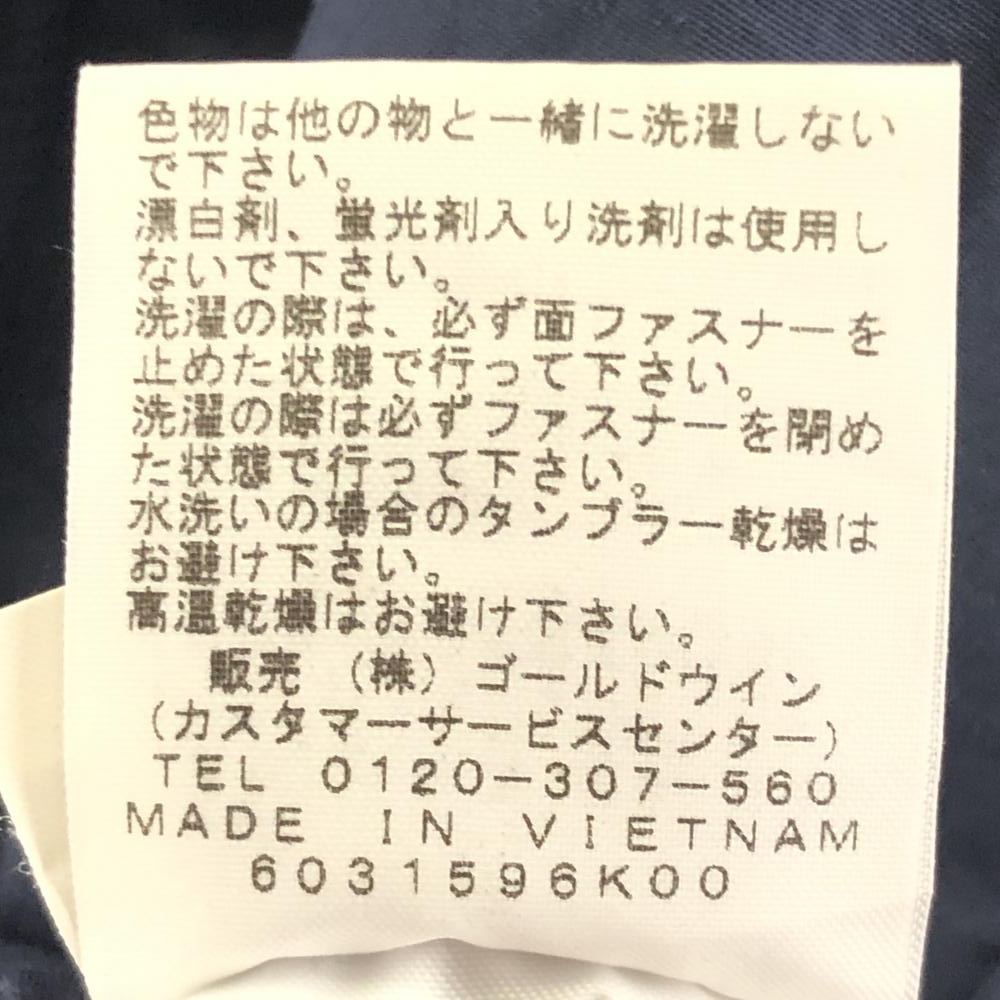 色物は他の物と一緒に洗濯しない
で下さい。
漂白剤、蛍光剤入り洗剤は使用し
ないで下さい。
洗濯の際は、必ず面ファスナーを
止めた状態で行って下さい。
洗濯の際は必ずファスナーを閉め
た状態で行って下さい。
水洗いの場合のタンブラー乾燥は
お避け下さい。
高温乾燥はお避け下さい。
販売 (株) ゴールドウイン
(カスタマーサービスセンター)
TEL 0120-307-560
MADE IN VIETNAM
6031596K00